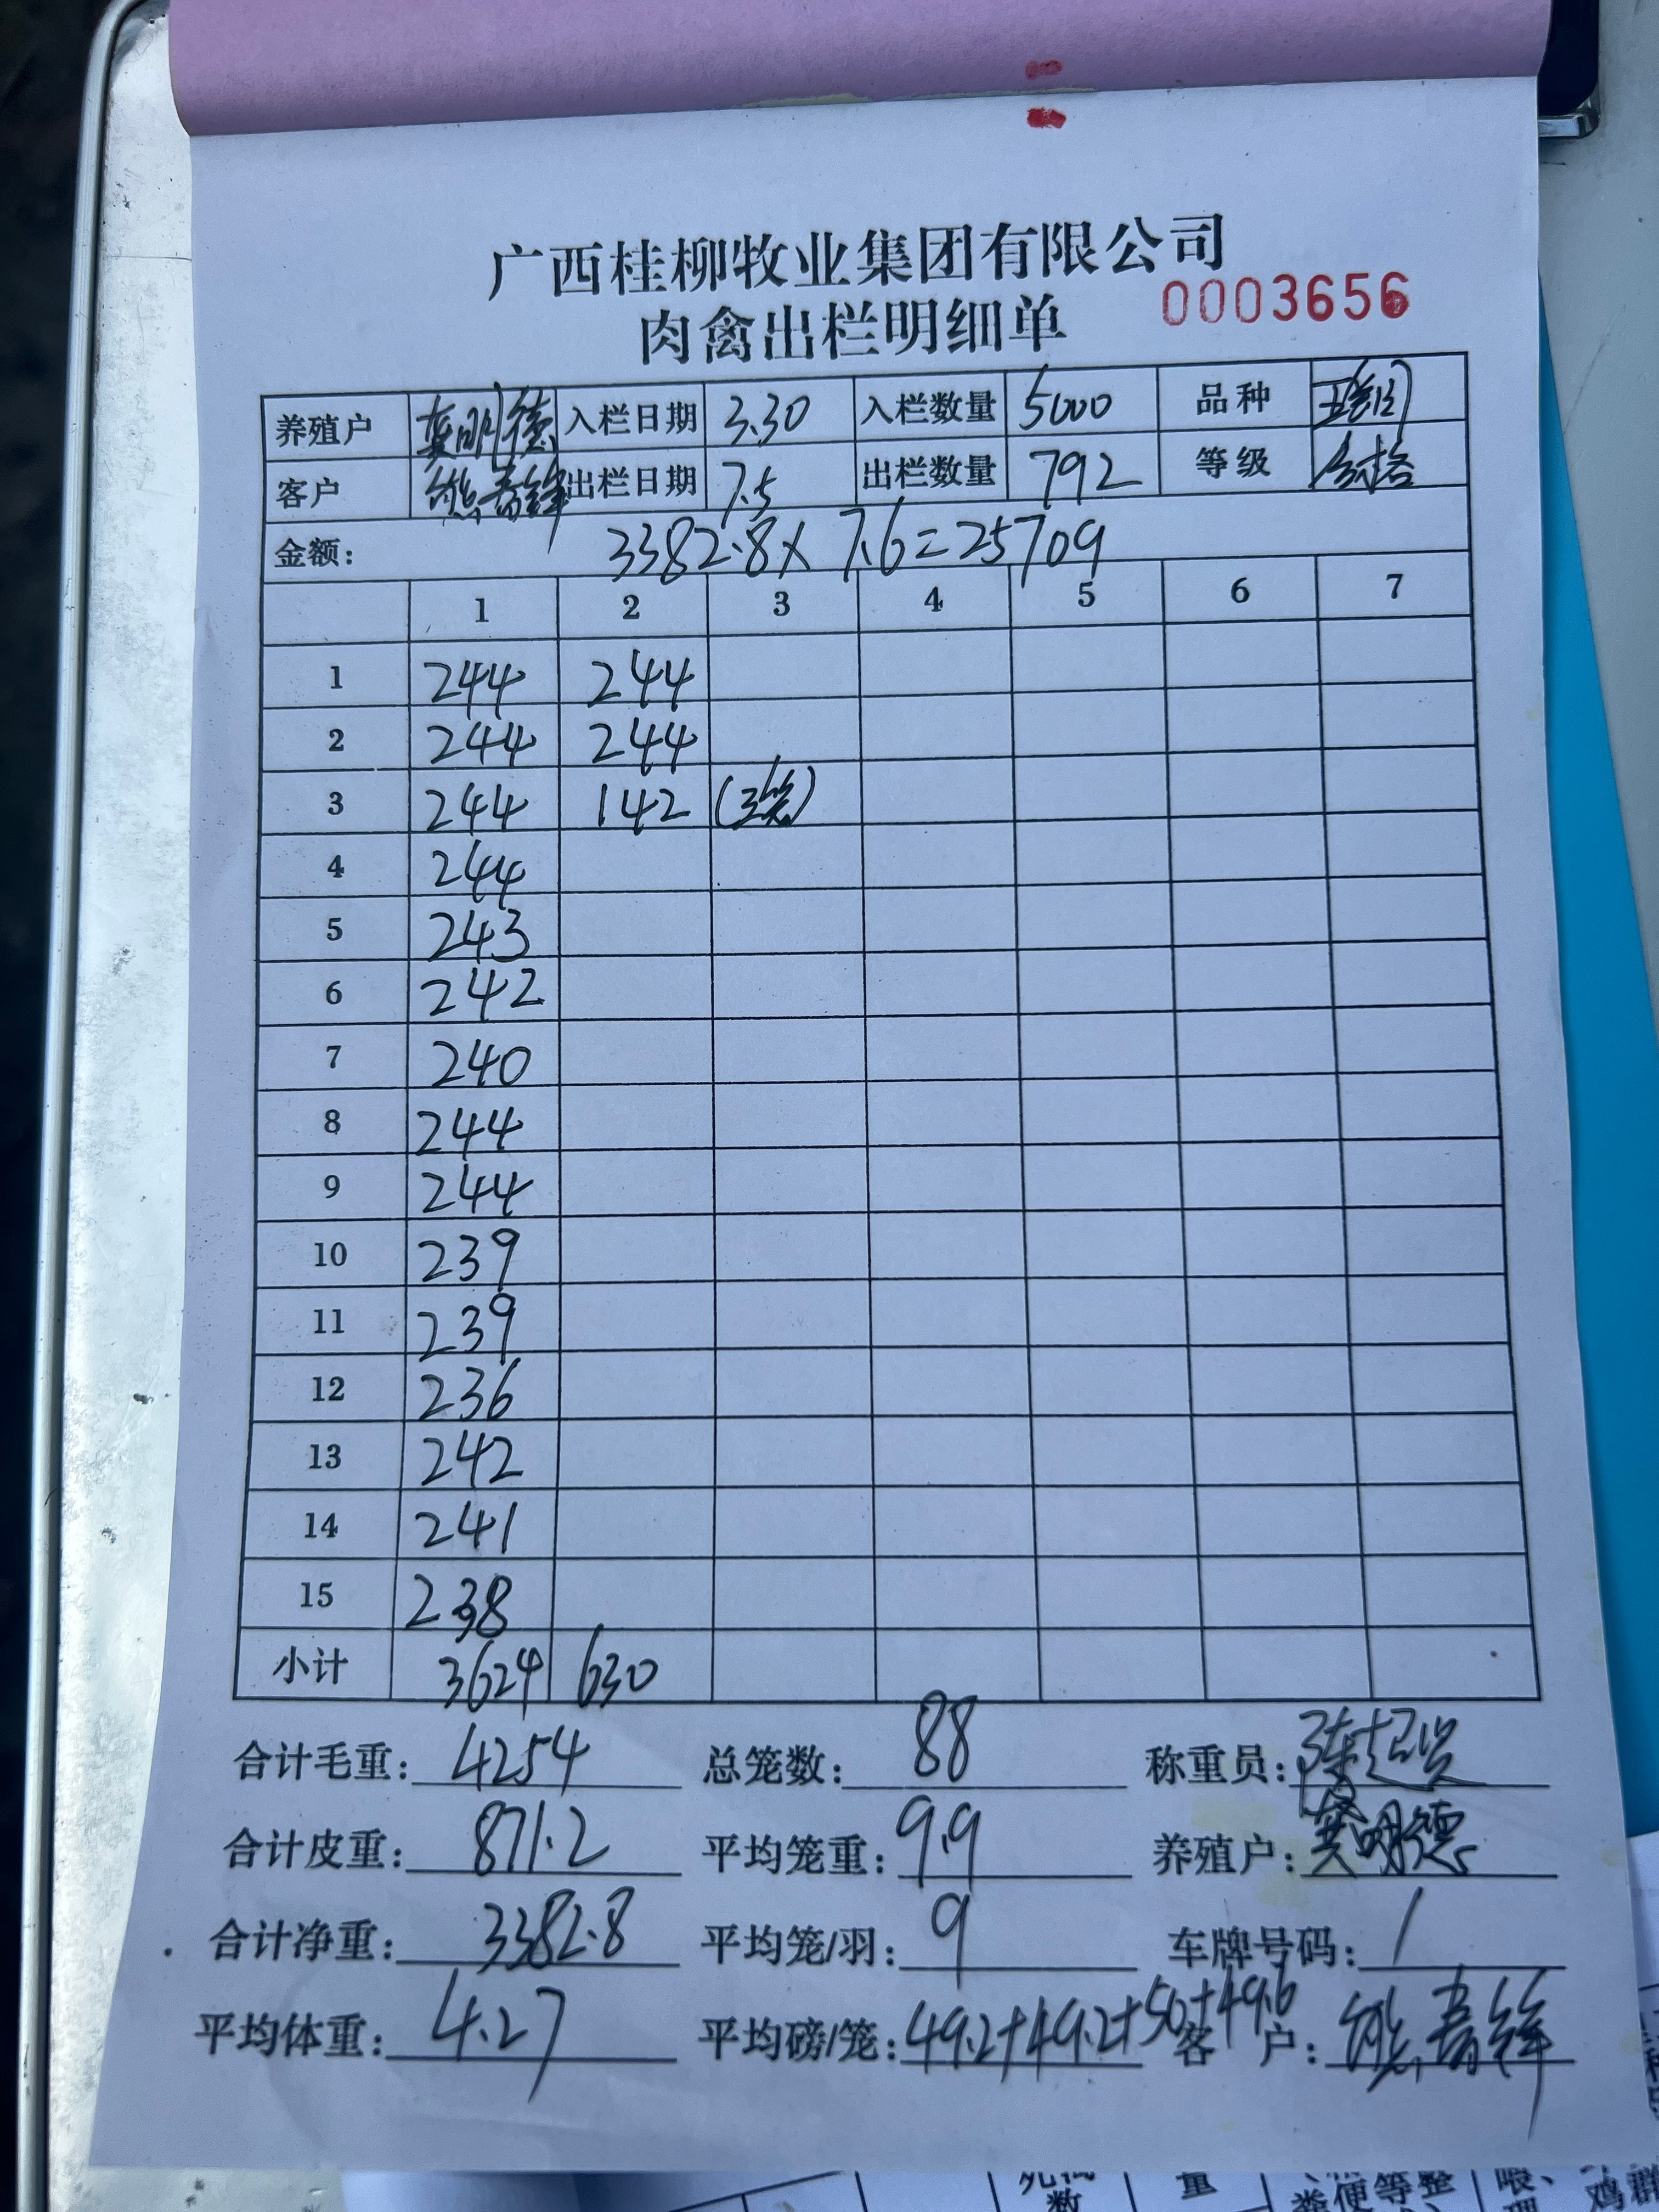 广西桂柳牧业集团有限公司
肉禽出栏明细单 0003656
养殖户 龚明德 入栏日期 3.30 入栏数量 5000 品种
客户 熊青锋 出栏日期 7.5 出栏数量 792 等级 合格
金额: 3382.8×7.6=25709
1 2 3 4 5 6 7
1 244 244
2 244 244
3 244 142 (3笼)
4 244
5 243
6 242
7 240
8 244
9 244
10 239
11 239
12 236
13 242
14 241
15 238
小计 3624 630
合计毛重: 4254 总笼数: 88 称重员: 陈起
合计皮重: 871.2 平均笼重: 9.9 养殖户: 龚明德
合计净重: 3382.8 平均笼/羽: 9 车牌号码: /
平均体重: 4.27 平均磅/笼: 49.2+49.2+50+49.6 客户: 熊青锋
量
数 粪便等整 喂、 鸡群